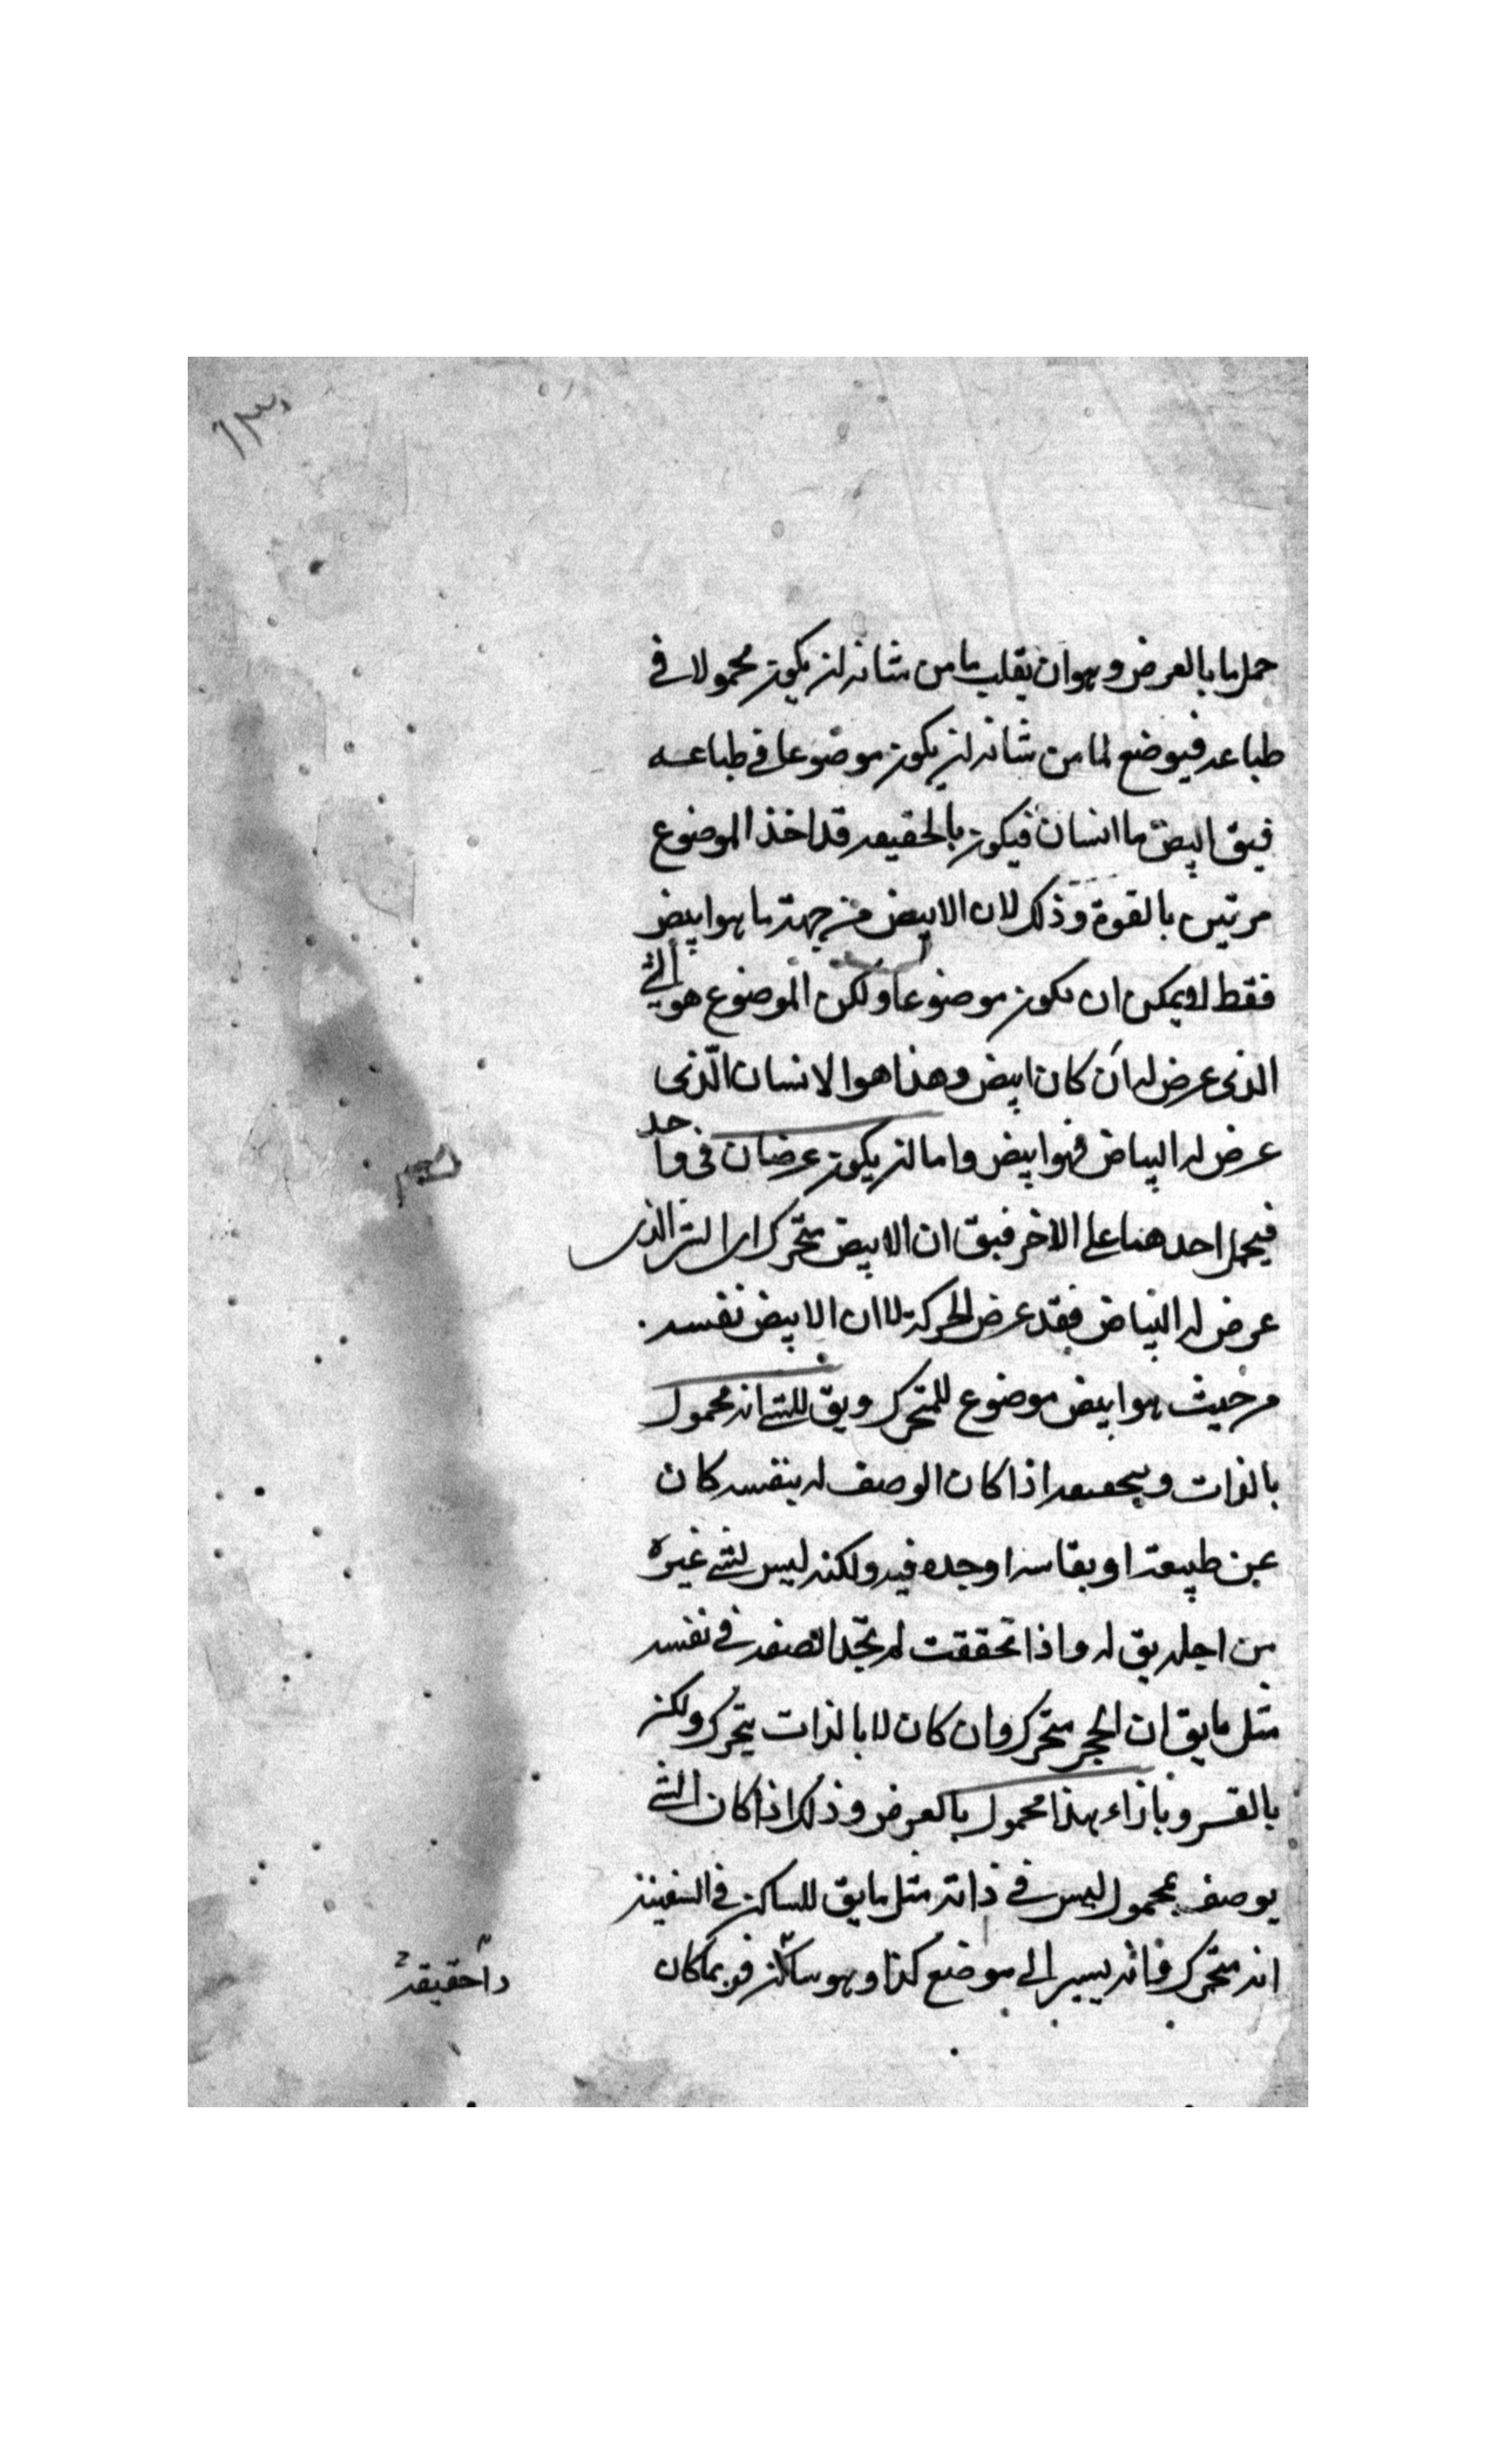 ١٣٠
حمل ما بالعرض وهو ان يقلب ما من شانه ان يكون محمولا في
طباعه فيوضع لما من شانه ان يكون موضوعا في طباعه
فيق ابيض ما انسان فيكون بالحقيقه قد اخذ الموضوع
مرتين بالقوة وذلك لان الابيض من جهة ما هو ابيض
فقط لا يمكن ان يكون موضوعا ولكن الموضوع هو الشي
الذي عرض له ان كان ابيض وهذا هو الانسان الذي
عرض له البياض فهو ابيض واما ان يكون عرضان في واحد
فيحمل احدهما على الاخر فيق ان الابيض متحرك اى الشي الذي
عرض له البياض فقد عرض الحركة لا ان الابيض نفسه
من حيث هو ابيض موضوع للمتحرك ويق للشي انه محمول
بالذات وبالحقيقه اذا كان الوصف له بنفسه كان
عن طبيعة او بقاسر اوجده فيه ولكنه ليس لشي غيره
من اجله يق له واذا تحققت لم تجد الصفه في نفسه
مثل ما يق ان الحجر متحرك وان كان لا بالذات يتحرك ولكن
بالقسر وبازاء هذا محمول بالعرض وذلك اذا كان الشي
يوصف بمحمول ليس في ذاته مثل ما يق للساكن في السفينة
انه متحرك فانه يسير الى موضع كذا وهو ساكن فربما كان
حقيقه